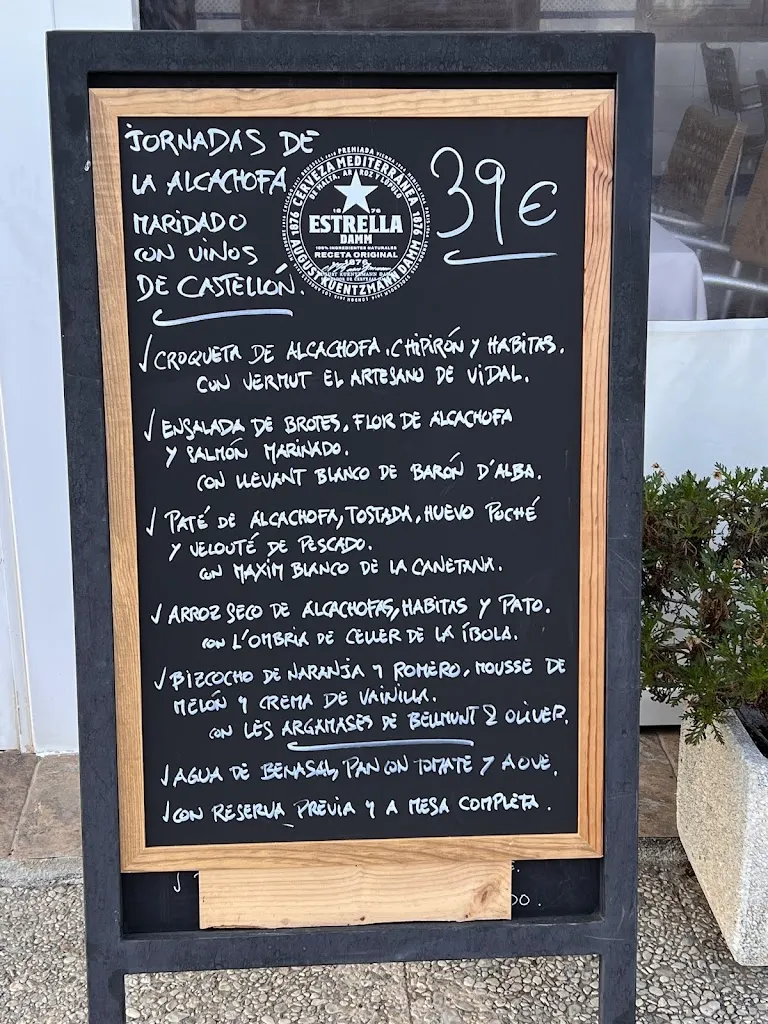 JORNADAS DE
LA ALCACHOFA
MARIDADO
CON VINOS
DE CASTELLÓN.
PREMIADA
CERVEZA MEDITERRÁNEA
DE MALTA, ARROZ Y LÚPULO
1876
1876
ESTRELLA
DAMM
100% INGREDIENTES NATURALES
RECETA ORIGINAL
1876
AUGUST KUENTZMANN DAMM
39€
✓CROQUETA DE ALCACHOFA, CHIPIRÓN Y HABITAS.
CON VERMUT EL ARTESANO DE VIDAL.
✓ENSALADA DE BROTES, FLOR DE ALCACHOFA
Y SALMÓN MARINADO.
CON LLEVANT BLANCO DE BARÓN D'ALBA.
✓PATÉ DE ALCACHOFA, TOSTADA, HUEVO POCHÉ
Y VELOUTÉ DE PESCADO.
CON MAXIM BLANCO DE LA CANETANA.
✓ARROZ SECO DE ALCACHOFAS, HABITAS Y PATO.
CON L'OMBRIA DE CELLER DE LA ÍBOLA.
✓BIZCOCHO DE NARANJA Y ROMERO, MOUSSE DE
MELÓN Y CREMA DE VAINILLA.
CON LES ARGAMASES DE BELLMUNT & OLIVER.
✓AGUA DE BENASAL, PAN CON TOMATE Y AOVE.
✓CON RESERVA PREVIA Y A MESA COMPLETA.